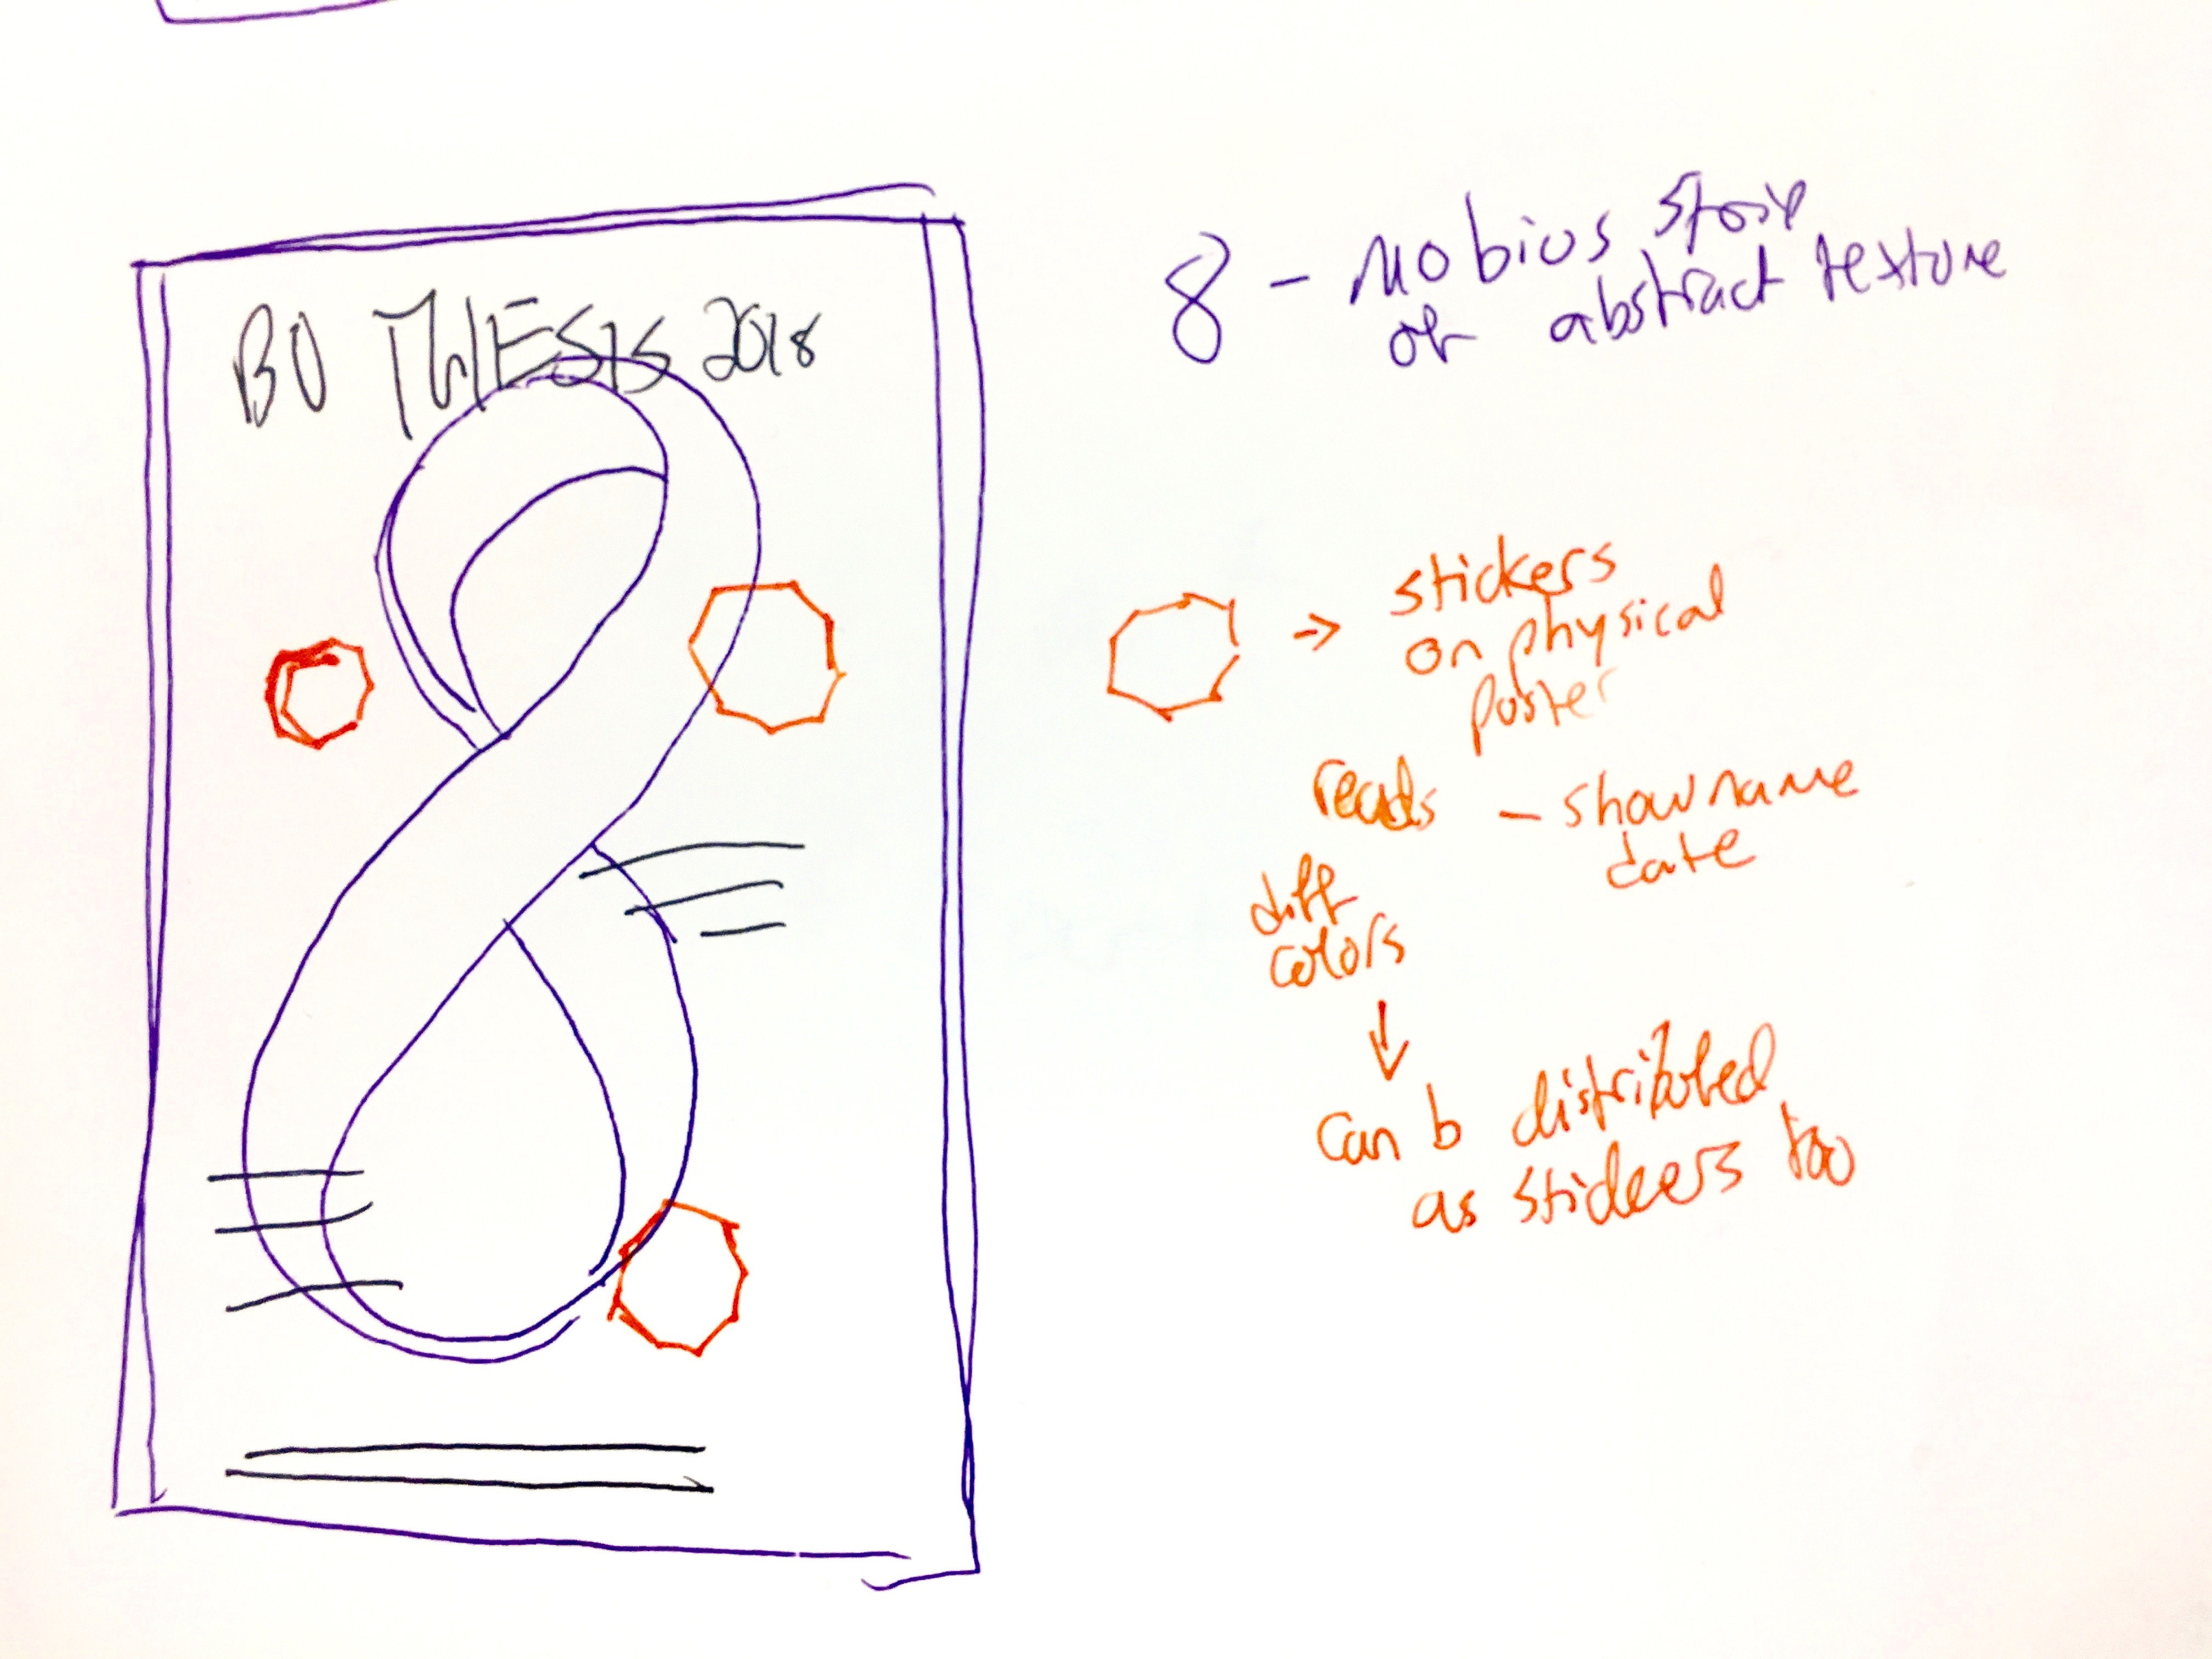 BU THESIS 2018
8 - Mobius strip
or abstract texture
stickers
on physical
poster
reads - show name
date
diff
colors
can b distributed
as stickers too